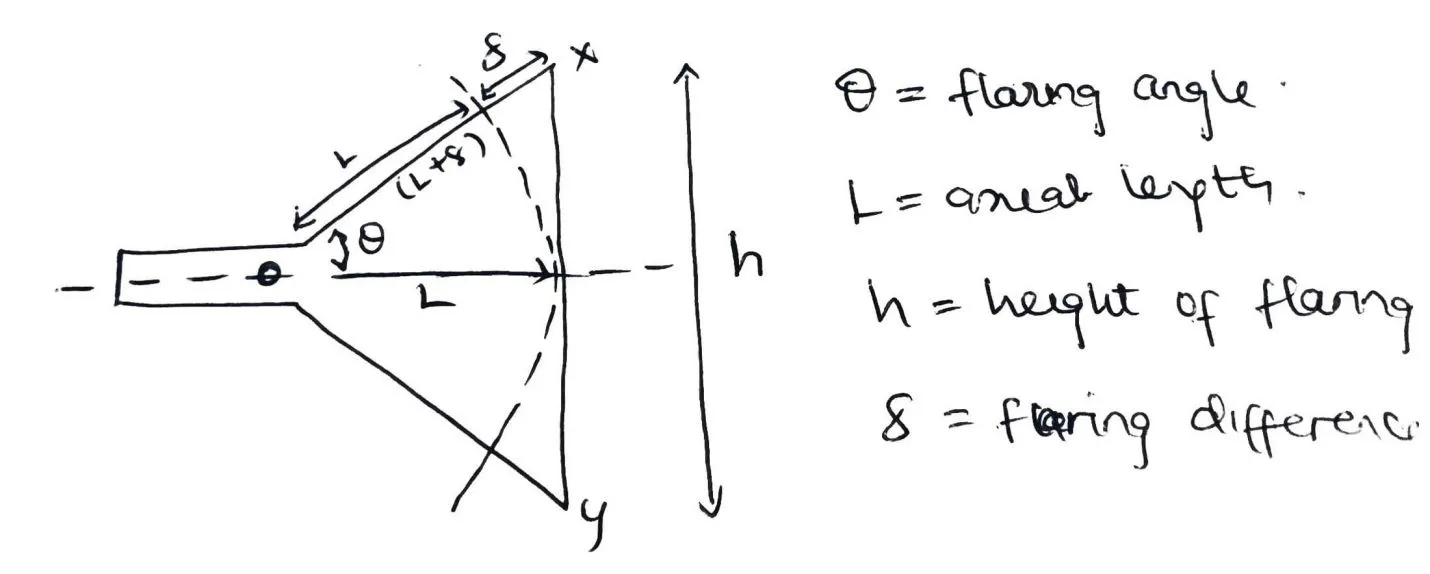 δ
x
L
(L+δ)
θ
θ
L
h
y
θ = flaring angle.
L = axeal length.
h = height of flaring
δ = flaring differenc